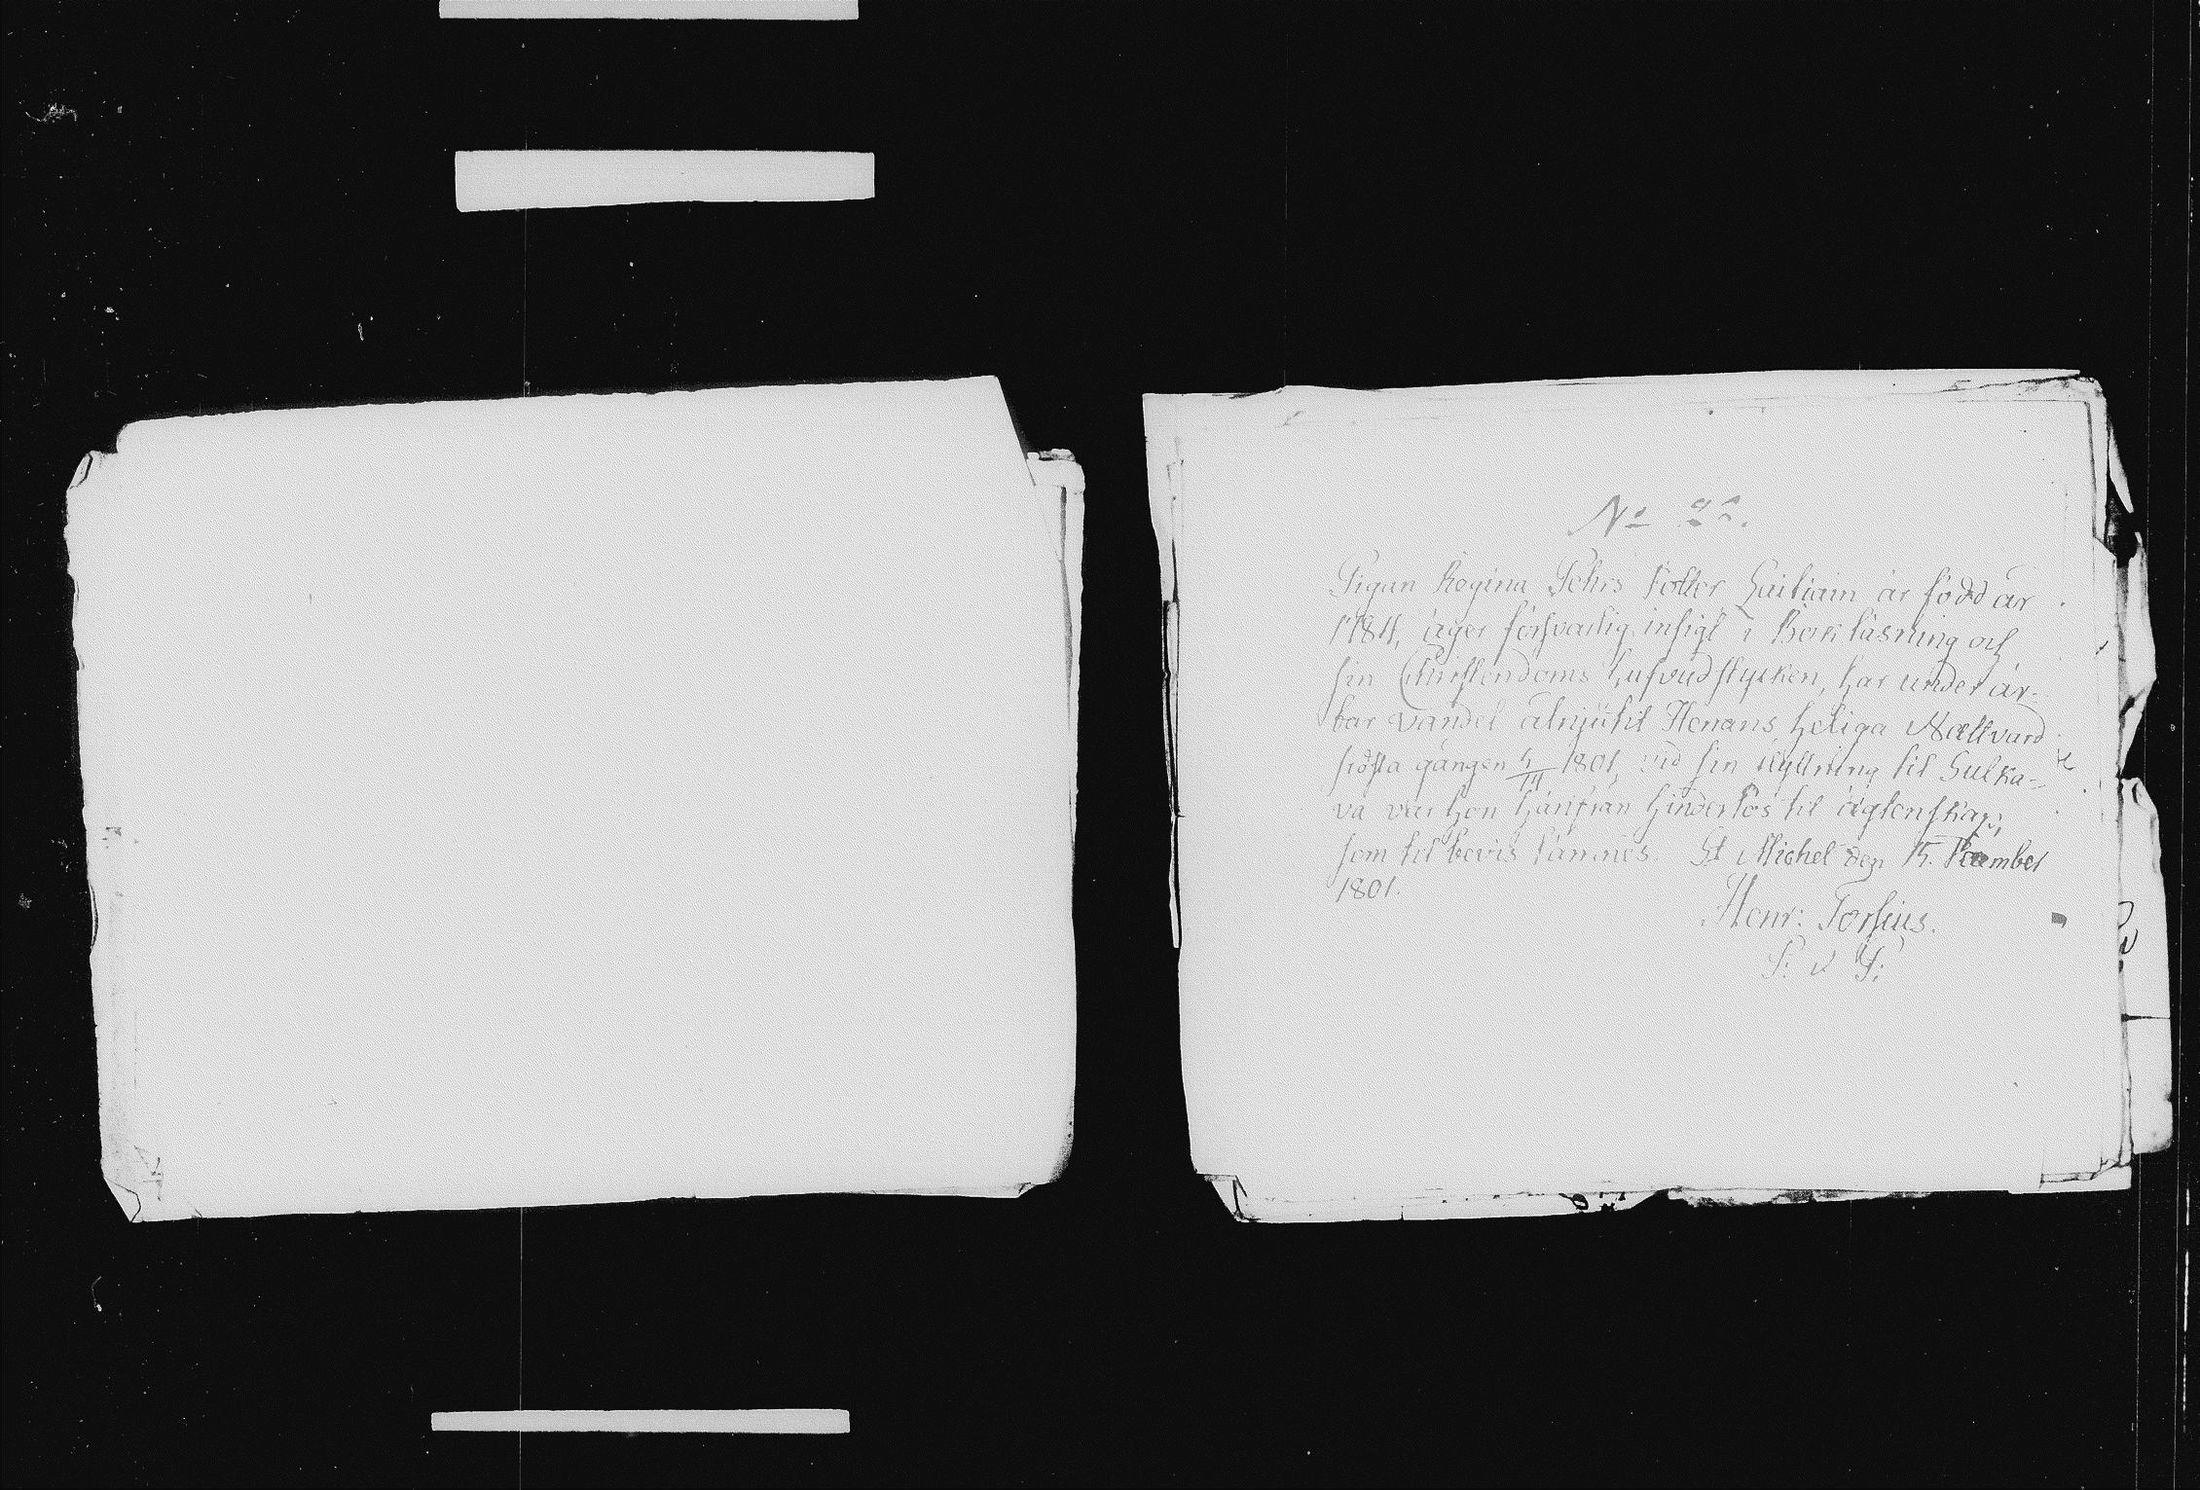 No 22.
Pigan Regina Pehrs dotter Haikiain är född år
1784, äger försvarlig insigt i Bok läsning och
sin Christendoms hufvudstycken, har under är-
bar vandel åtnjutit Herrans heliga Nattvard
sidsta gången 1801, vid sin flyttning til Sulka-
va var hon härifrån hinderlös til ägtenskap,
som til bevis lämnes. St Michel den 15 December
1801.
Henr: Forsius.